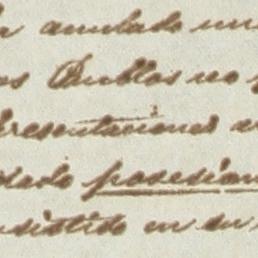 anulado un
os Pueblos no
presentaciones
dado posesion
nsistido en su